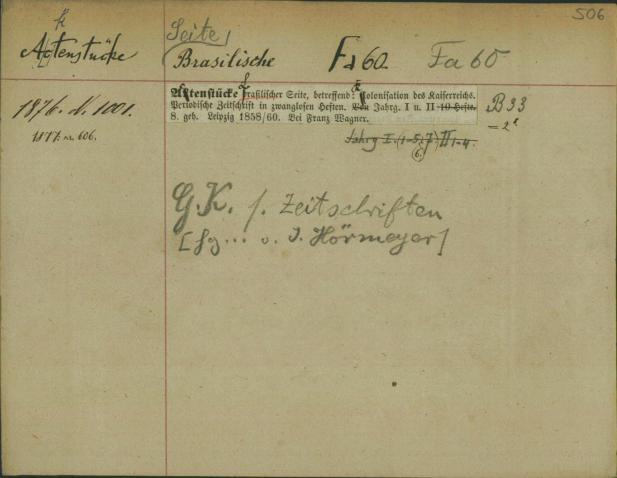 506
k
Seite
Actenstücke
Brasilische Fa 60. Fa 60
Aktenstücke Brasilischer Seite, betreffend: Kolonisation des Kaiserreichs.
Periodische Zeitschrift in zwanglosen Heften. Von Jahrg. I u. II 10 Hefte.
8. geh. Leipzig 1858/60. Bei Franz Wagner.
1876. N. 1001.
B 33
1877. nr. 606.
Jahrg I. (1-5,7) II 1-4.
6.
G.K. f. Zeitschriften
[hg... v. J. Hörmeyer]